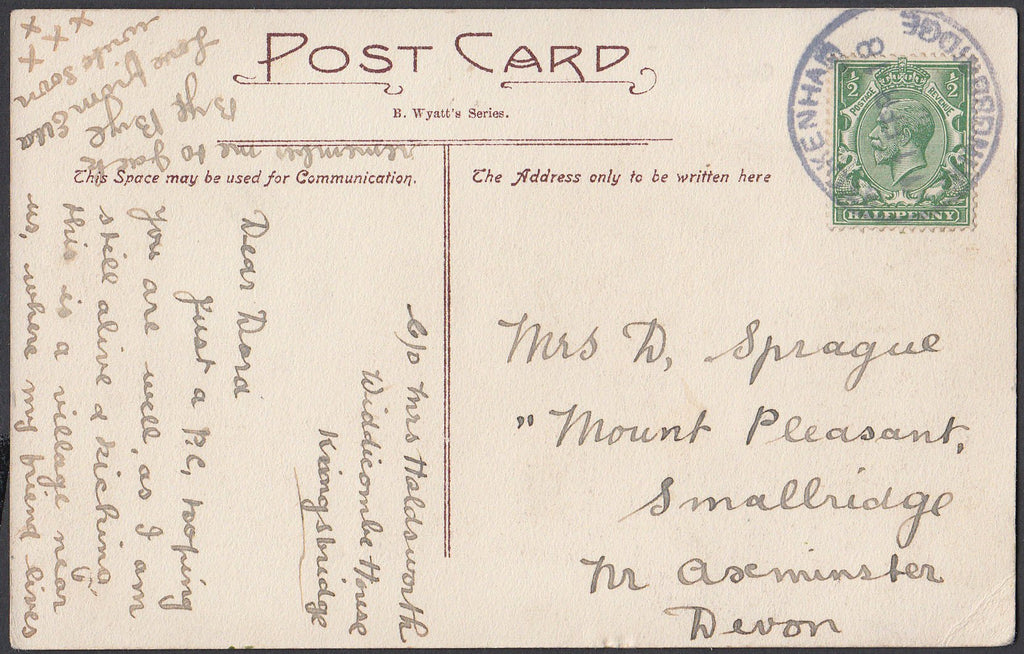 POST CARD
B. Wyatt's Series.
This Space may be used for Communication.
The Address only to be written here
½ ½
POSTAGE REVENUE
HALFPENNY
KENHAM
8
Mrs D, Sprague
"Mount Pleasant,
Smallridge
nr Axminster
Devon
C/o Mrs Holdsworth
Widdicombe House
Kingsbridge
Dear Dora
Just a P.C, hoping
you are well, as I am
still alive & kicking
this is a village near
us, where my friend lives
remember me to Jack
Bye Bye
Love from Eva
write soon
x x x x